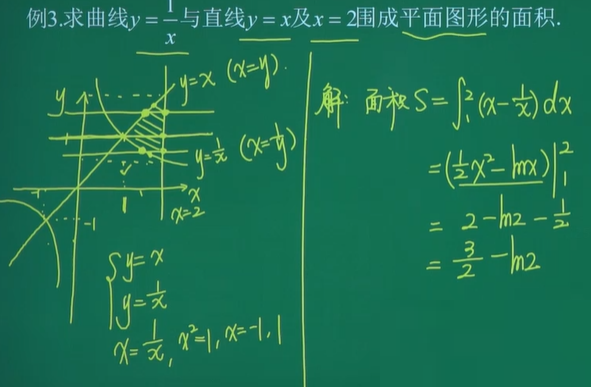 例3.求曲线y = 1/x 与直线y = x及x = 2围成平面图形的面积.
y
y=x (x=y).
y=1/x (x=1/y)
x
1
x=2
-1
{y=x
y=1/x
x=1/x, x²=1, x=-1, 1
解: 面积S=∫₁²(x-1/x)dx
=(1/2x²-lnx)|₁²
= 2-ln2-1/2
= 3/2-ln2